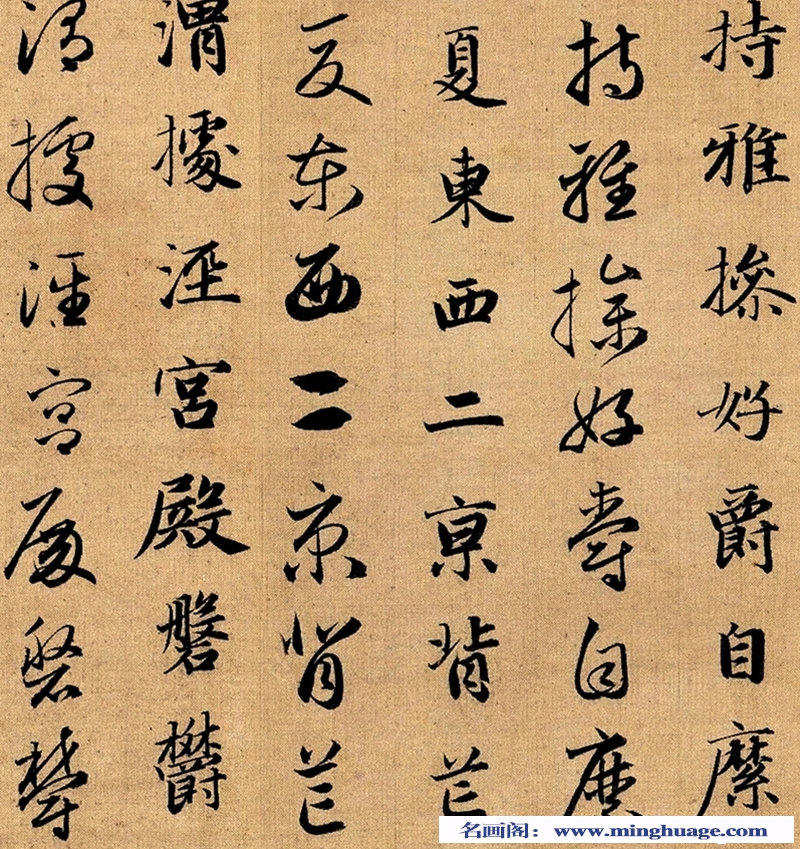 持雅操好爵自縻
持雅操好爵自縻
夏東西二京背芒
夏東西二京背芒
渭據涇宮殿磐鬱
渭據涇宮殿磐鬱
名画阁：www.minghuage.com